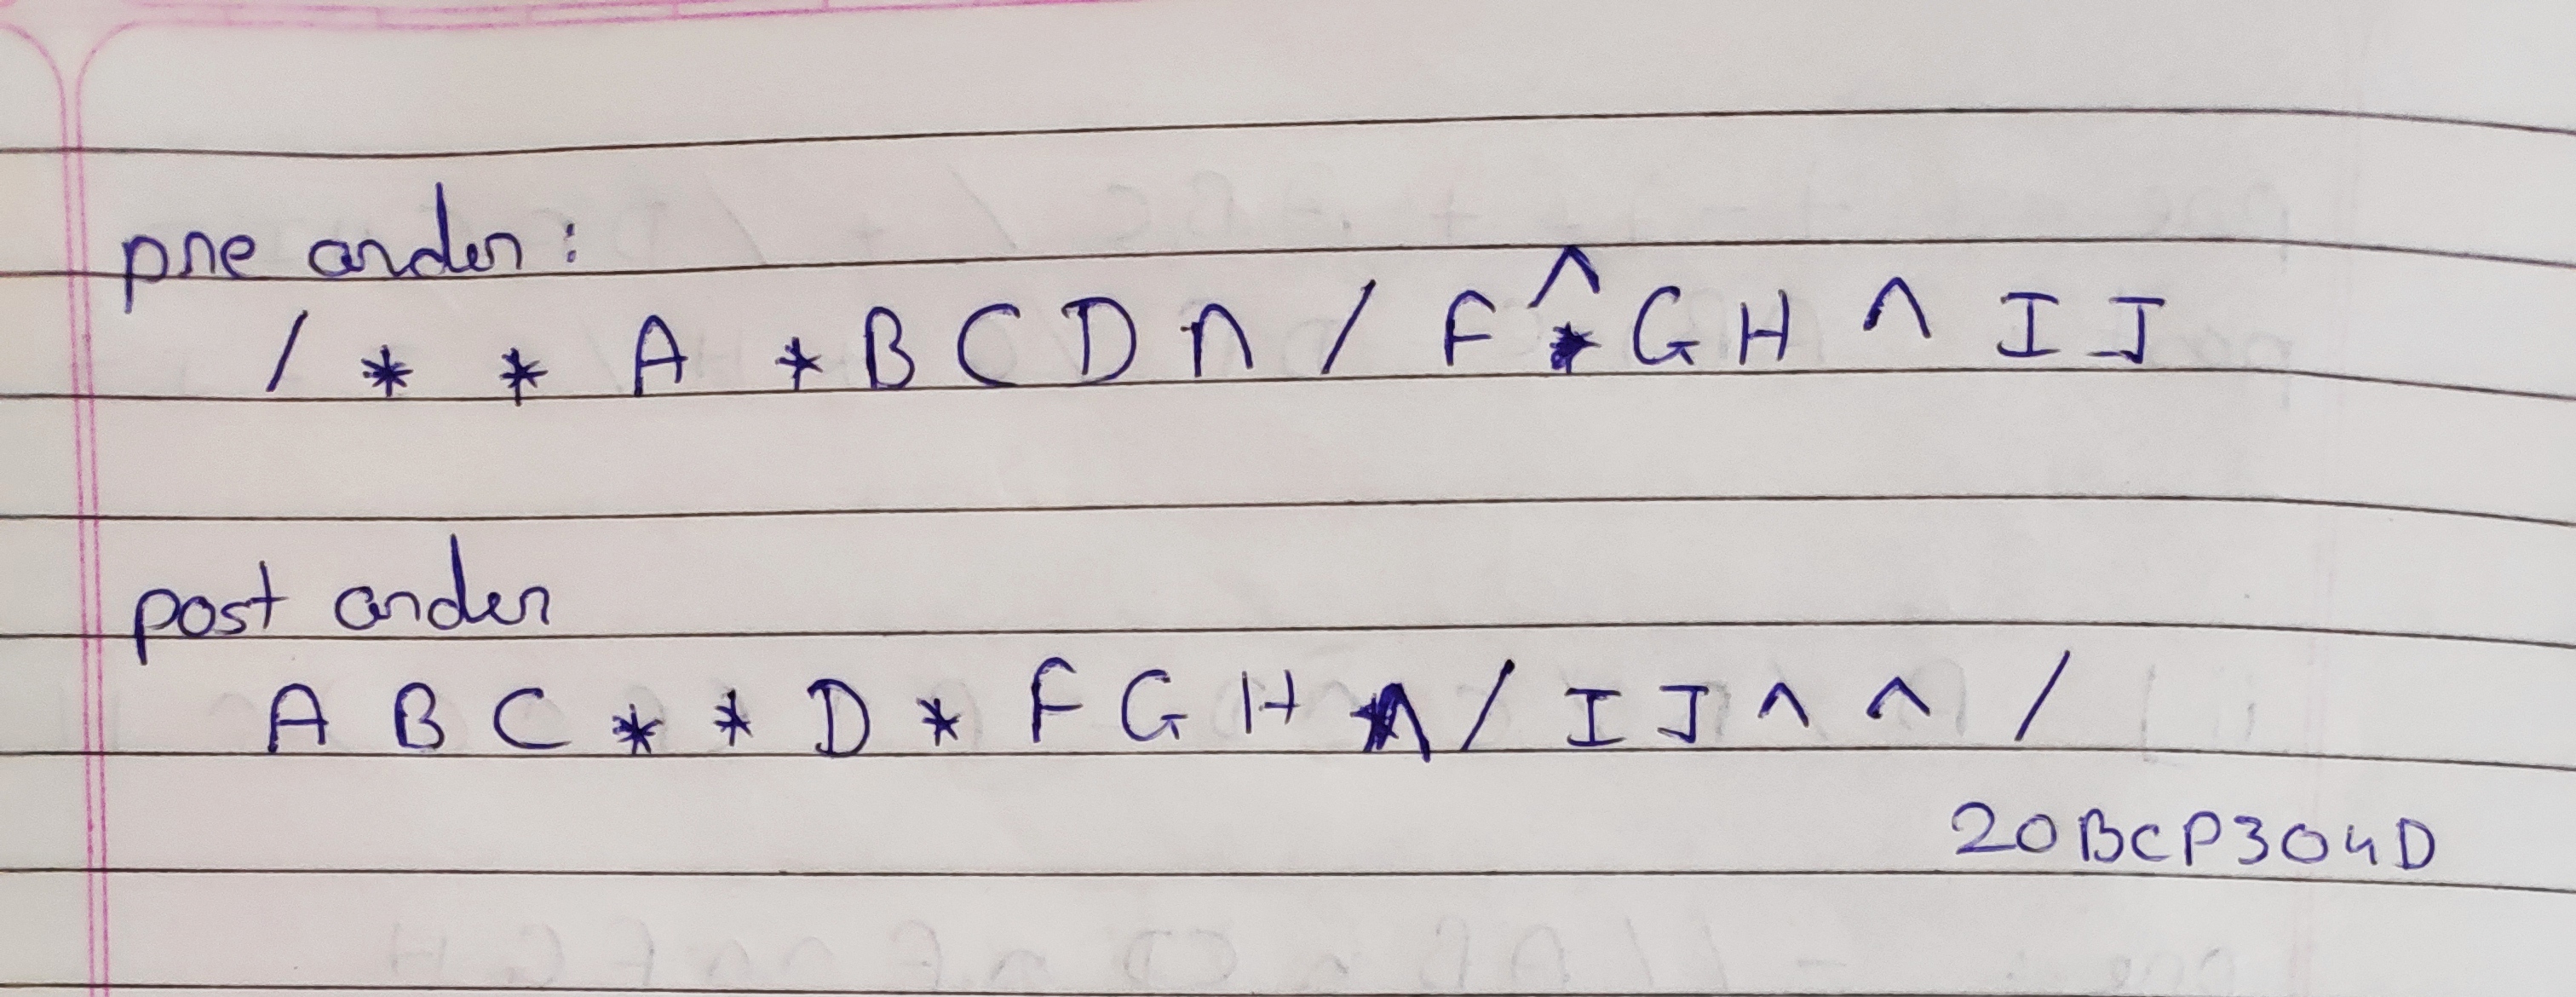 pre order:
/ * * A * B C D ^ / F ^ G H ^ I J
post order
A B C * * D * F G H ^ / I J ^ ^ /
20BCP304D